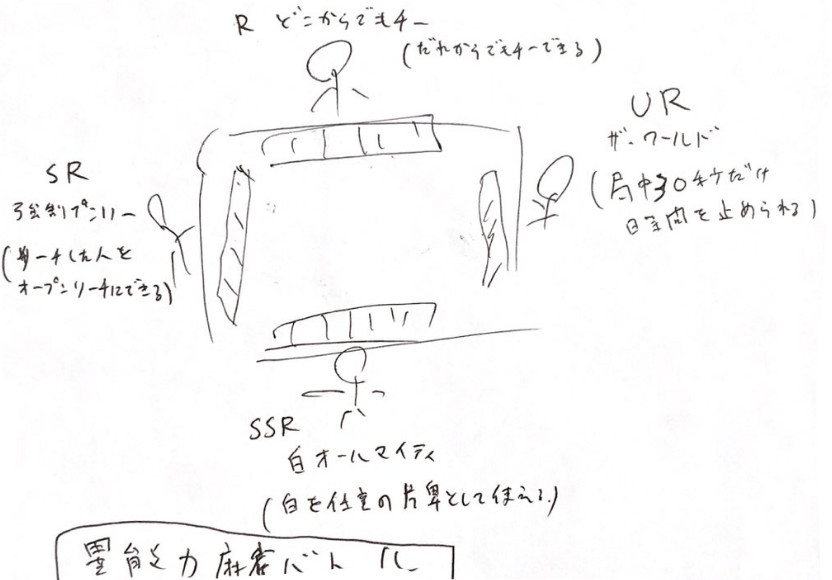 R どこからでもチー
(だれからでもチーできる)
UR
ザ・ワールド
(局中30秒だけ
時間を止められる)
SR
強制プンリー
(リーチした人を
オープンリーチにできる)
SSR
白オールマイティ
(白を任意の牌として使える)
異能力麻雀バトル